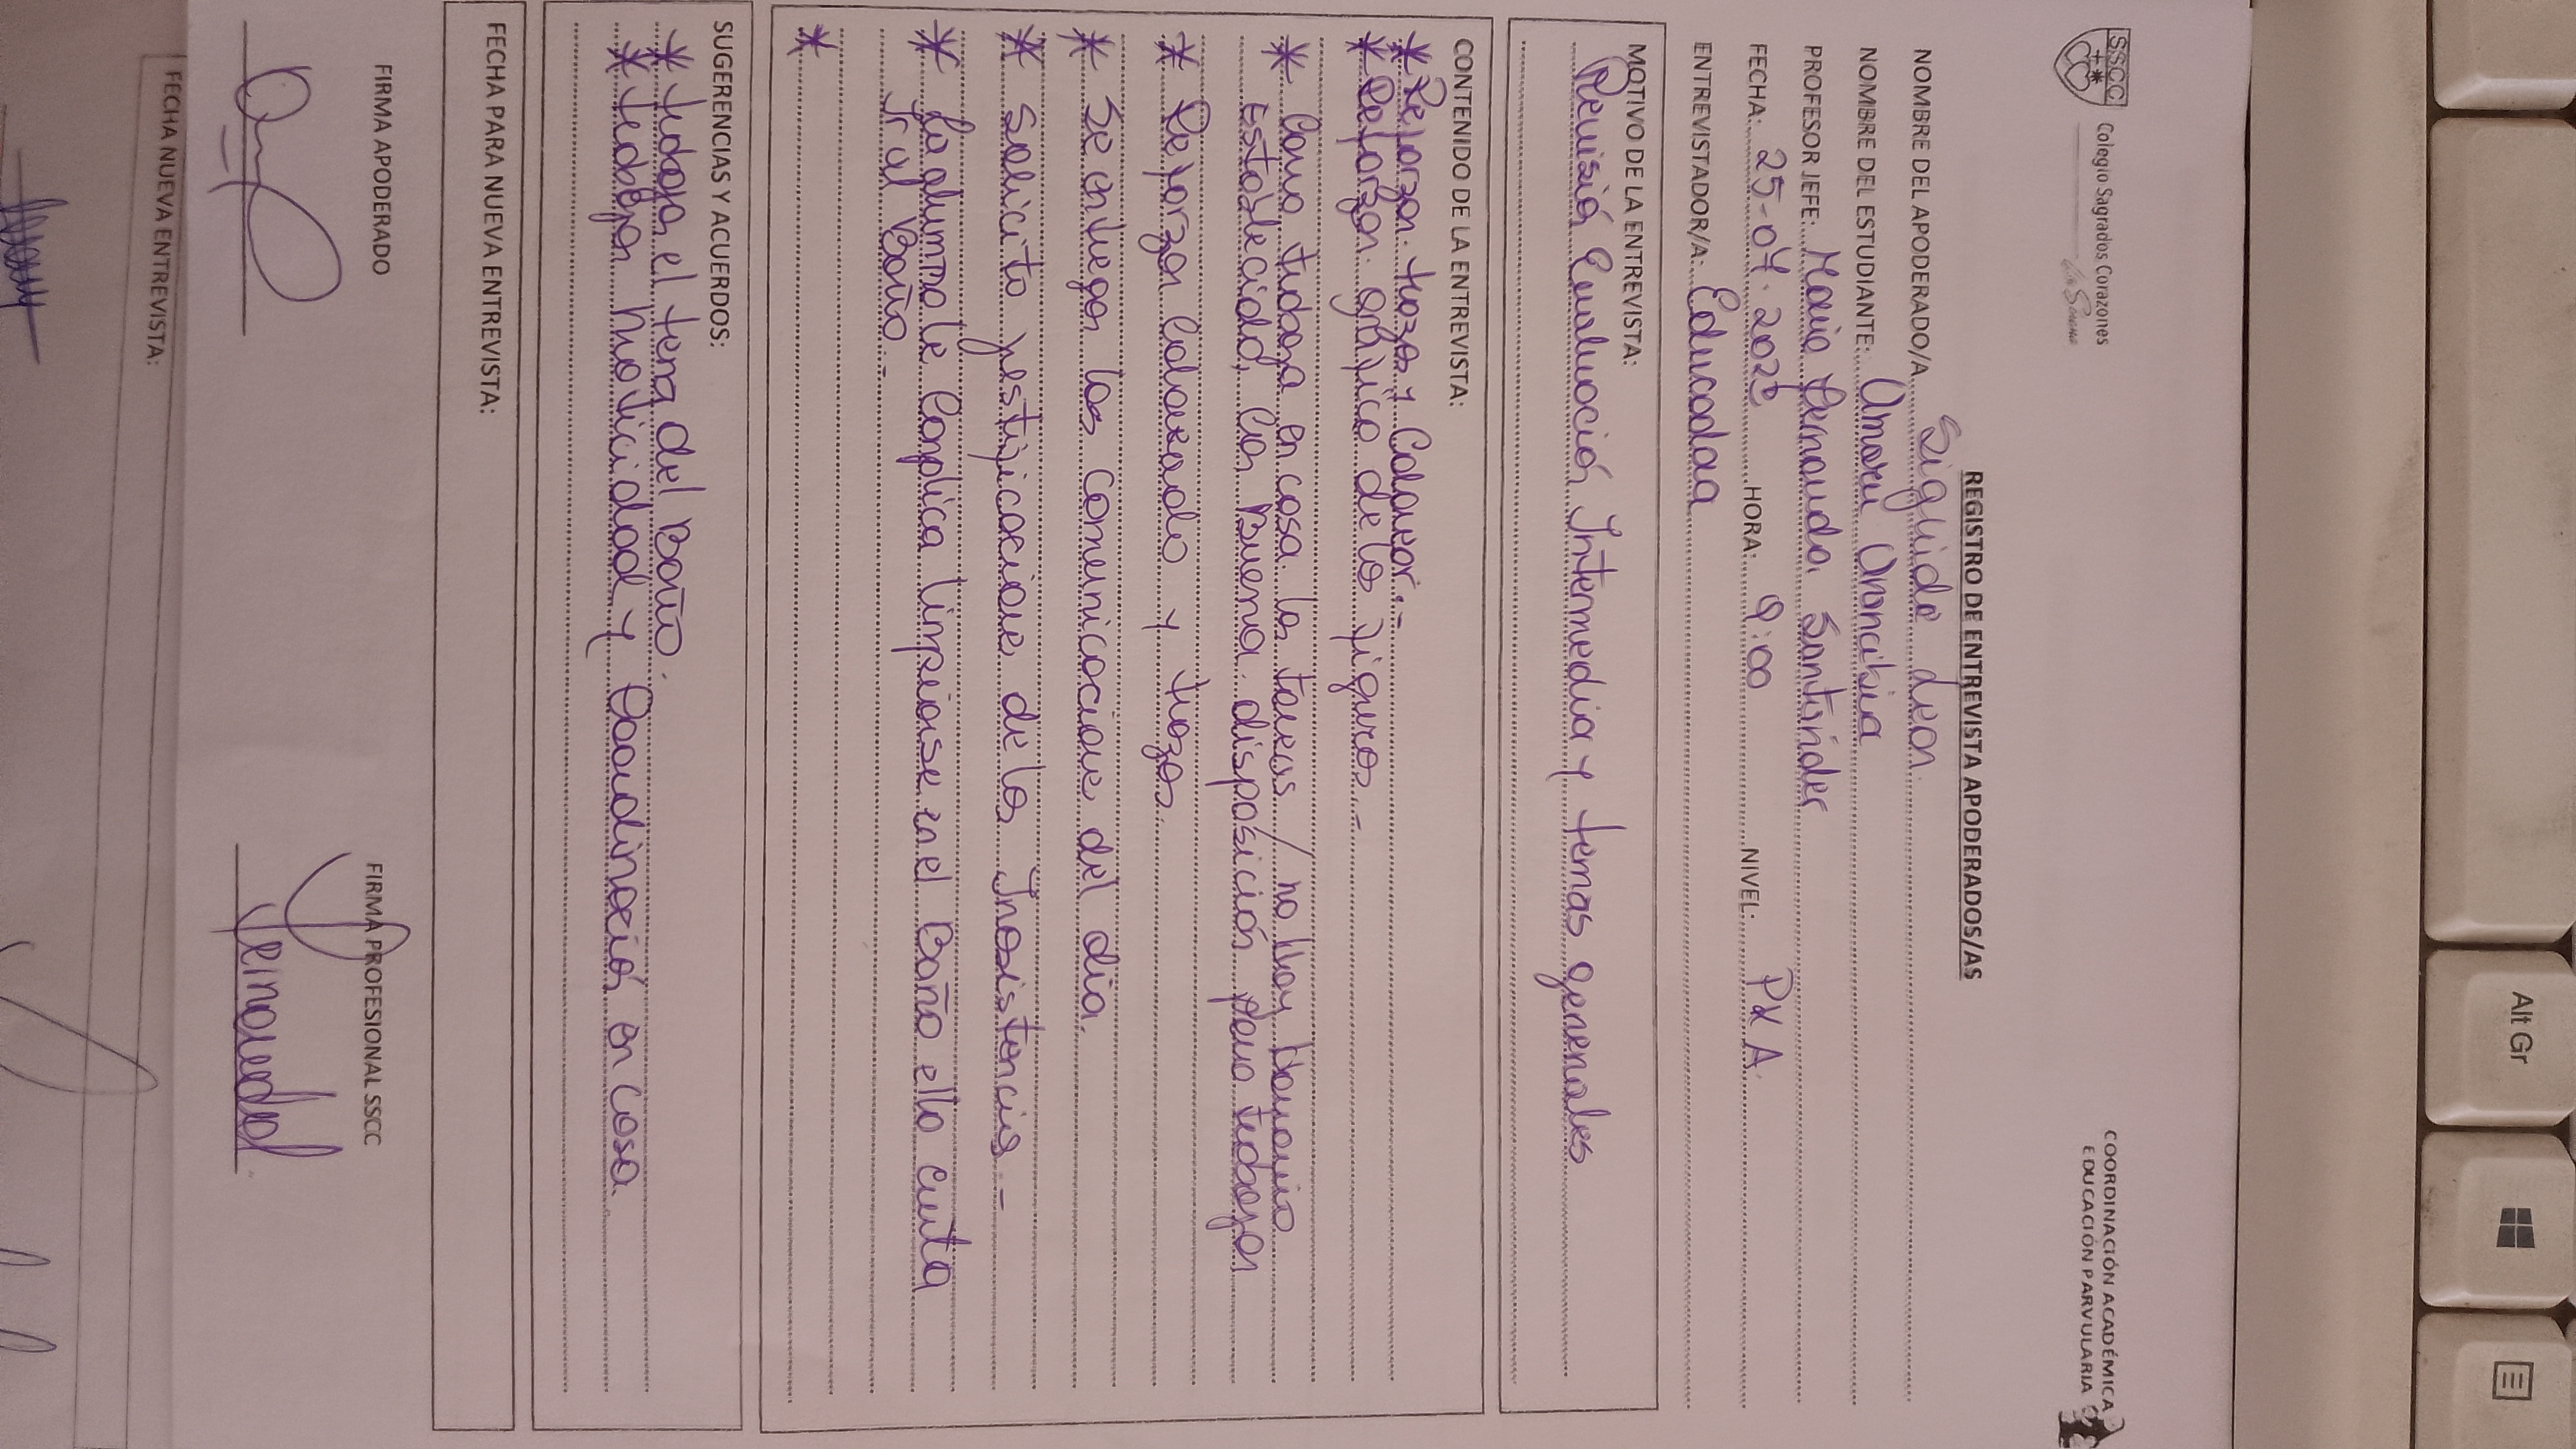 SS.CC
Colegio Sagrados Corazones
La Serena
COORDINACIÓN ACADÉMICA
EDUCACIÓN PARVULARIA
REGISTRO DE ENTREVISTA APODERADOS/AS
NOMBRE DEL APODERADO/A Siguinde Leon
NOMBRE DEL ESTUDIANTE: Amaru Arancibia
PROFESOR JEFE: Maria Fernanda Santander
FECHA: 25-04-2025 HORA: 9:00 NIVEL: PK A
ENTREVISTADOR/A: Educadora
MOTIVO DE LA ENTREVISTA:
Revisión Evaluación Intermedia y temas generales
CONTENIDO DE LA ENTREVISTA:
* Reforzar trazos y Colorear.-
* Reforzar gráfico de la figura.-
* Como trabaja en casa las tareas / no hay horario
Establecido, con Buena disposición para trabajar
* Reforzar Coloreado y trazos.
* Se entregan las comunicaciones del dia.
* Solicito justificaciones de las Inasistencias.-
* La alumna le complica limpiarse en el Baño ella evita
Ir al Baño.-
*
SUGERENCIAS Y ACUERDOS:
* trabajar el tema del Baño.
* trabajar motricidad y Coordinación en casa.
FECHA PARA NUEVA ENTREVISTA:
FIRMA APODERADO FIRMA PROFESIONAL SSCC
Fernanda
FECHA NUEVA ENTREVISTA:
Alt Gr